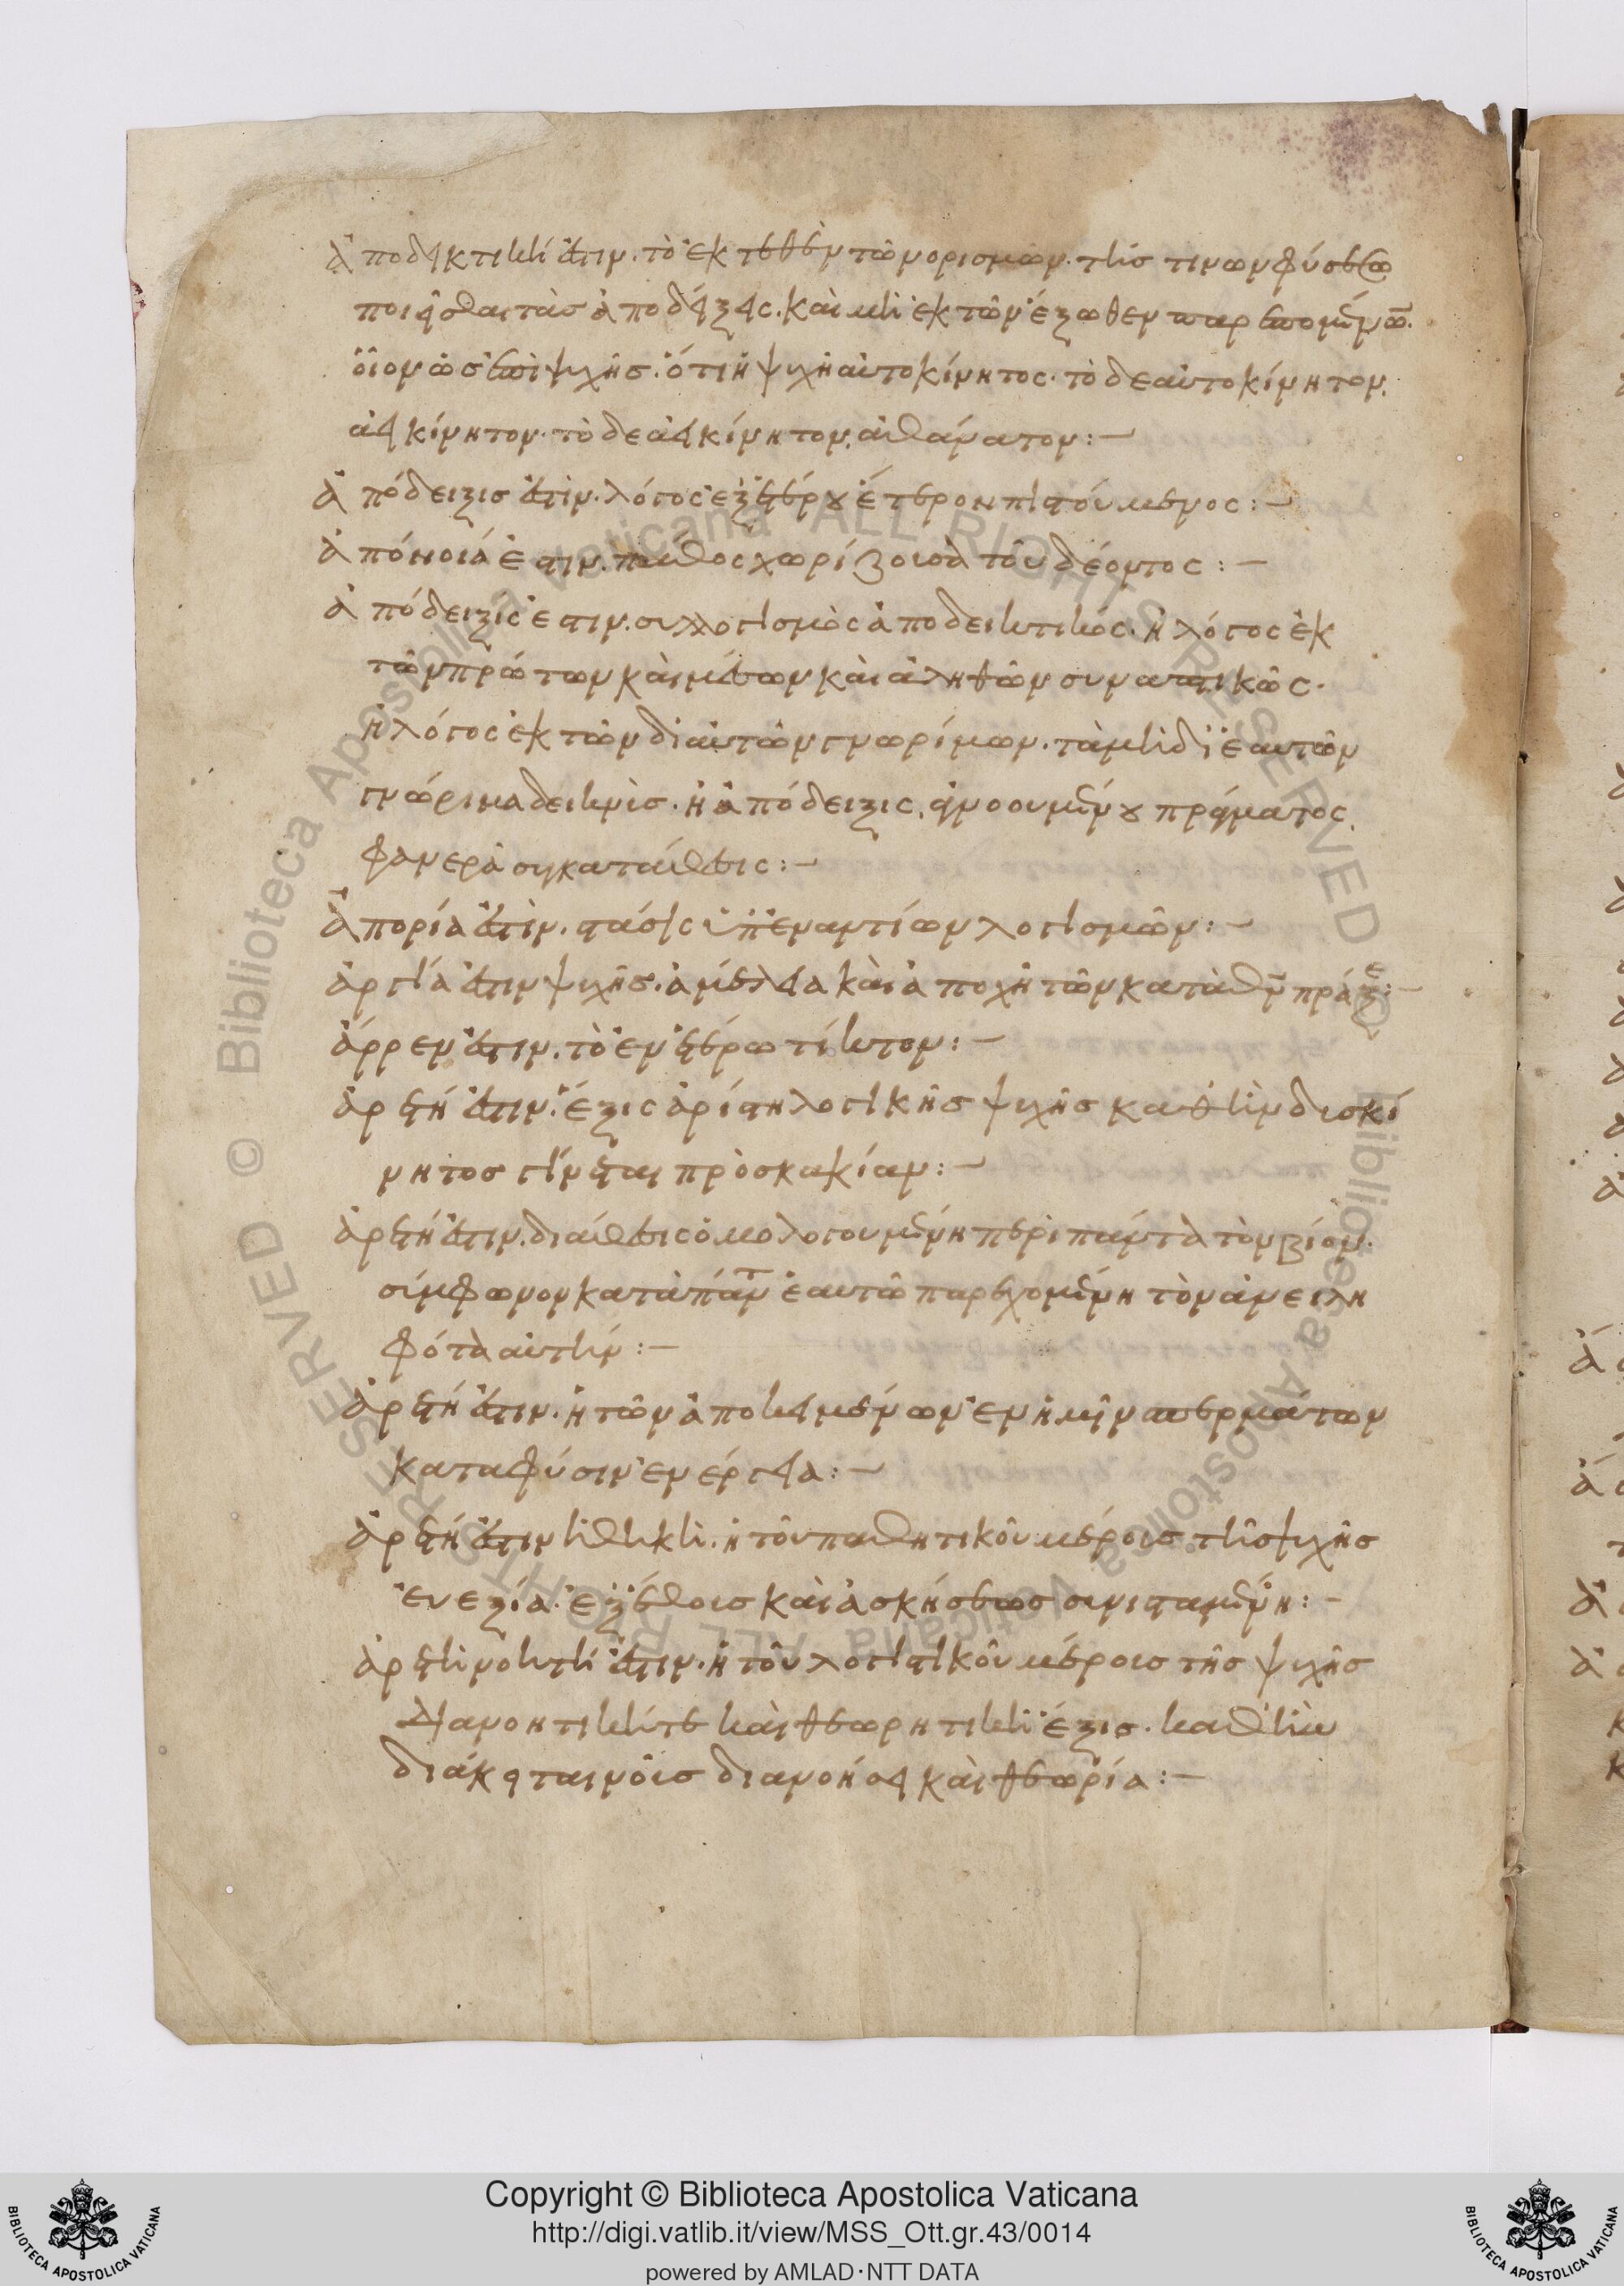 Ἀποδεικτική ἐστιν. τὸ ἐκ τεθὲν τῶν ορισμῶν. τῆς τινων φύσεως
ποιεῖσθαι τὰς ἀποδείξεις. καὶ μὴ ἐκ τῶν ἔξωθεν παρεπομένων.
οἷον ὡς ἐπὶ ψυχῆς. ὅτι ἡ ψυχὴ αὐτοκίνητος. τὸ δε αὐτοκίνητον,
ἀεικίνητον. τὸ δε ἀεικίνητον, ἀθάνατον:–
Ἀπόδειξις ἐστὶν. λόγος ἐξ ἑτέρου ἕτερον πιστούμενος:–
Ἀπόνοιά ἐστιν. πάθος χωρίζουσα τοῦ δέοντος:–
Ἀπόδειξίς ἐστιν. συλλογισμὸς ἀποδεικτικός. ἢ λόγος ἐκ
τῶν πρώτων καὶ μέσων καὶ ἀληθῶν συναστικῶς.
ἢ λόγος ἐκ τῶν δι αὐτῶν γνωρίμων. τὰ μὴ δι ἑαυτῶν
γνώριμα δεικνὺς. ἢ ἀπόδειξις, πράγματος,
φανερὰ συγκατάθεσις:–
Ἀπορία ἐστὶν. στάσις ὑπεναντίων λογισμῶν:–
Ἀργία ἐστιν ψυχῆς. ἀμέλεια καὶ ἀποχὴ τῶν κατὰ πράξε:–
Ἄρρεν ἐστιν. τὸ ἐν ἑτέρω τίκτον:–
Ἀρετή ἐστιν. ἕξις ἀρίστη λογικῆς ψυχῆς καθ ἣν δυσκί
νητος γίνεται πρὸς κακίαν:–
Ἀρετή ἐστιν. διάθεσις ὁμολογουμένη περὶ πάντα τὸν βίον.
σύμφωνον κατὰ πάντ ἑαυτῶ παρεχομένη τὸν ἀνειλη
φότα αὐτήν:–
Ἀρετή ἐστιν. ἡ τῶν ἀποκειμένων ἐν ἡμῖν σπερμάτων
κατα φύσιν ἐνέργεια:–
Ἀρετή ἐστιν ἠθικὴ. ἡ τοῦ παθητικοῦ μέρους τῆς ψυχῆς
εὐεξία. ἐξ ἔθους καὶ ἀσκήσεως συνισταμένη:–
Ἀρετὴ νοητή ἐστιν. ἡ τοῦ λογιστικοῦ μέρους τῆς ψυχῆς
διανοητική τε καὶ θεωρητικὴ ἕξις. καθ ἣν
διάκειται νοῦς διανοήσει καὶ θεωρία:–
Biblioteca Apostolica Vaticana ALL RIGHTS RESERVED ©
Copyright © Biblioteca Apostolica Vaticana
http://digi.vatlib.it/view/MSS_Ott.gr.43/0014
powered by AMLAD·NTT DATA
BIBLIOTECA APOSTOLICA VATICANA
BIBLIOTECA APOSTOLICA VATICANA